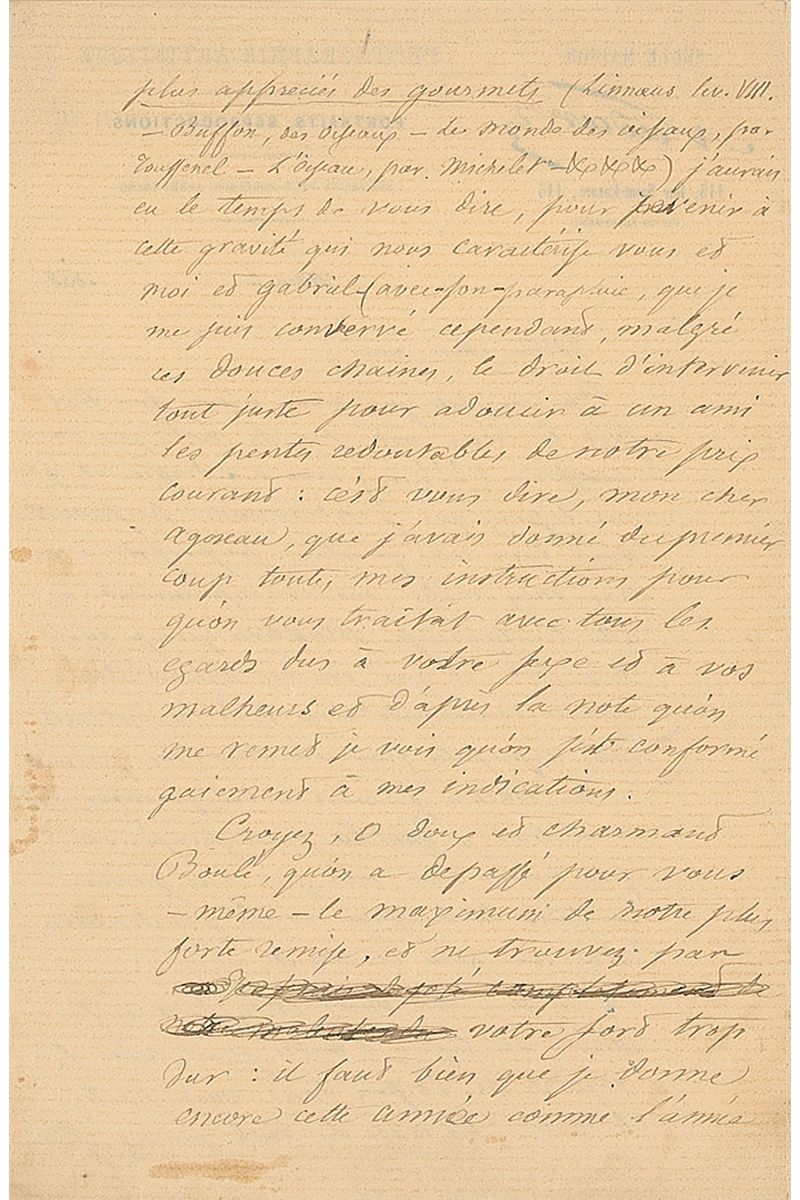 plus appreciés des gourmets (Linnæus liv. VIII.
— Buffon, des oiseaux — le monde des oiseaux, par
Toussenel — L'Oiseau, par Michelet — XXX) j'aurais
eu le temps de vous dire, pour revenir à
cette gravité qui nous caractérise vous et
moi et gabriel (avec-son-parapluie, que je
me suis conservé cependant, malgré
ces douces chaines, le droit d'intervenir
tout juste pour adoucir à un ami
les pentes redoutables de notre prix
courant : c'est vous dire, mon cher
agoneau, que j'avais donné du premier
coup toutes mes instructions pour
qu'on vous traitât avec tous les
egards dus à votre sexe et à vos
malheurs et d'après la note qu'on
me remet je vois qu'on s'est conformé
gaiement à mes indications.
Croyez, O doux et charmant
Boulé, qu'on a depassé pour vous
— même — le maximum de notre plus
forte remise, et ne trouvez pas
votre sort trop
dur : il faut bien que je donne
encore cette année comme l'année
PHOTOGRAPHIE ARTISTIQUE
PORTRAITS, REPRODUCTIONS